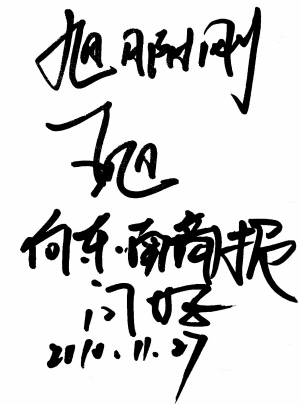 旭日阳刚
王旭
向东南商报
问好
2010.11.27